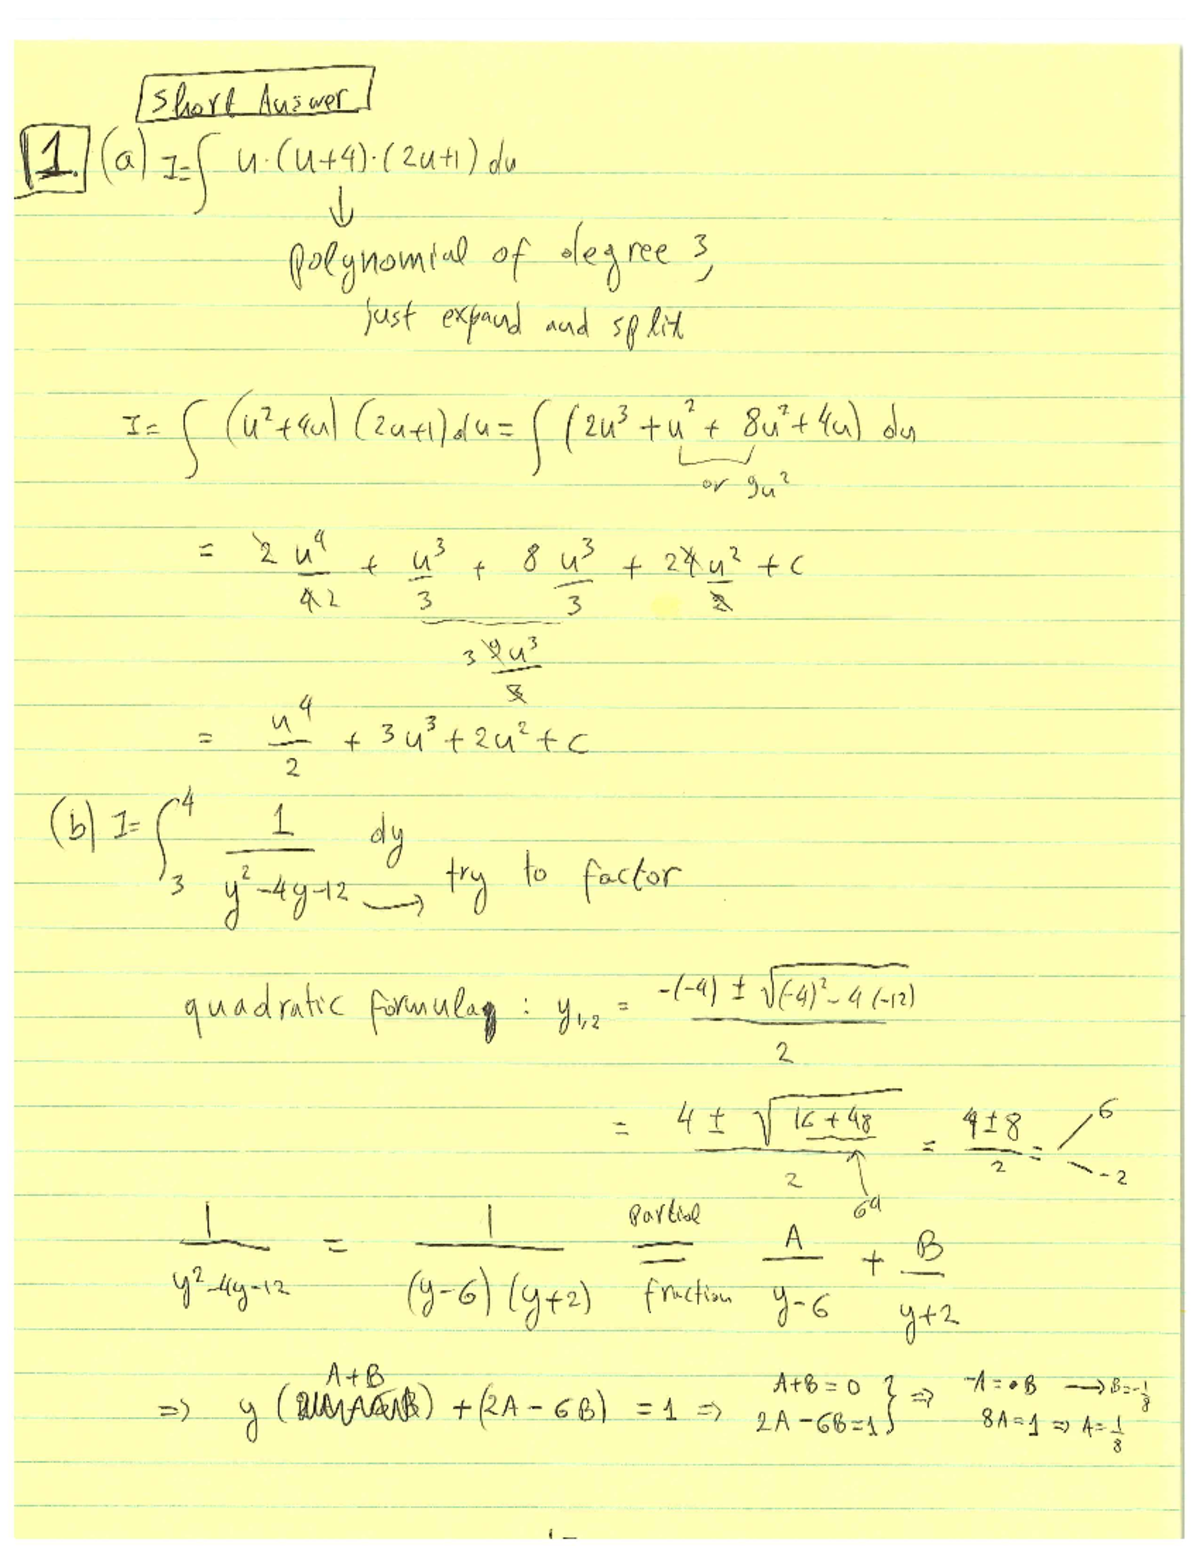 Short Answer
1. (a) I=∫ u·(u+4)·(2u+1) du
↓
polynomial of degree 3,
just expand and split
I= ∫ (u²+4u) (2u+1) du = ∫ (2u³ + u² + 8u² + 4u) du
or 9u²
= 2 u⁴/4 2 + u³/3 + 8 u³/3 + 2 4 u²/2 + c
3 9 u³/3
= u⁴/2 + 3u³ + 2u² + c
(b) I= ∫₃⁴ 1/(y²-4y-12) dy → try to factor
quadratic formula : y₁,₂ = (-(-4) ± √((-4)²-4(-12)))/2
= (4 ± √(16+48))/2 = (4±8)/2 = 6
-2
64
1/(y²-4y-12) = 1/((y-6)(y+2)) = partial fraction A/(y-6) + B/(y+2)
A+B
⇒ y ( ) + (2A-6B) = 1 ⇒ A+B=0 } ⇒ -A=B → B=-1/8
2A-6B=1 8A=1 ⇒ A=1/8